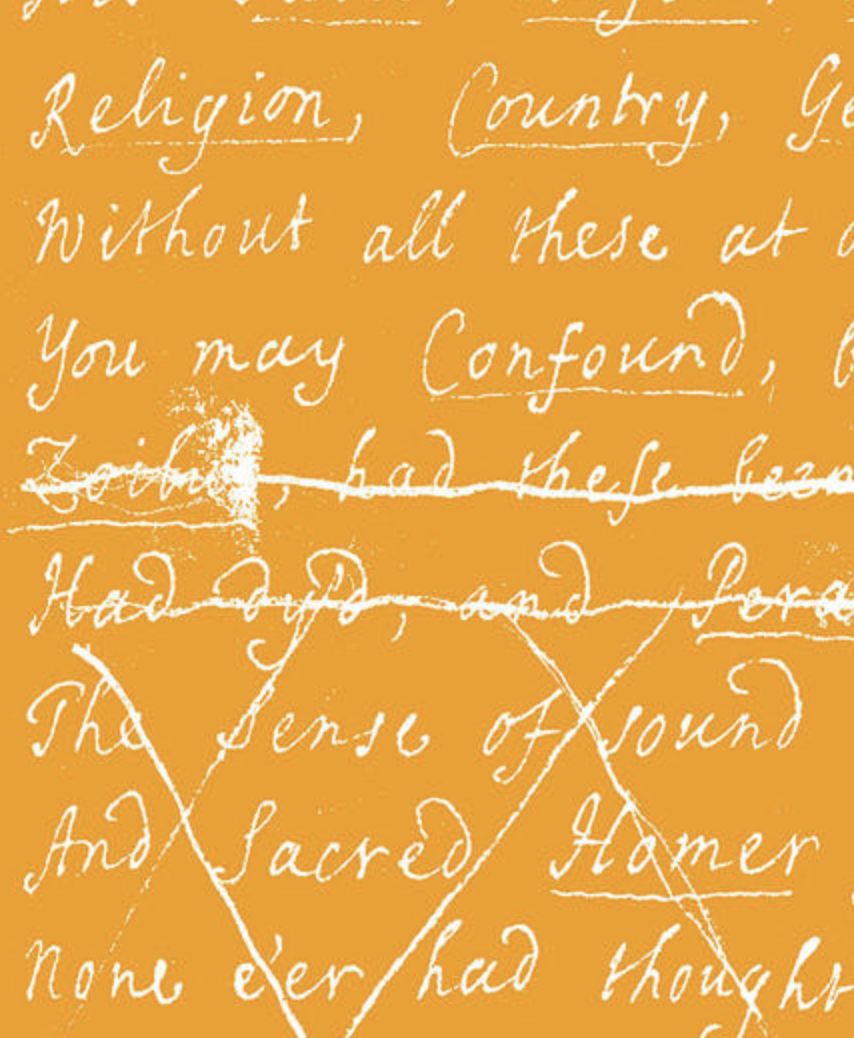 Religion, Country, Ge
Without all these at
You may Confound,
Zoilus, had these been
Had dy'd, and
The Sense of sound
And Sacred Homer
None e'er had thought